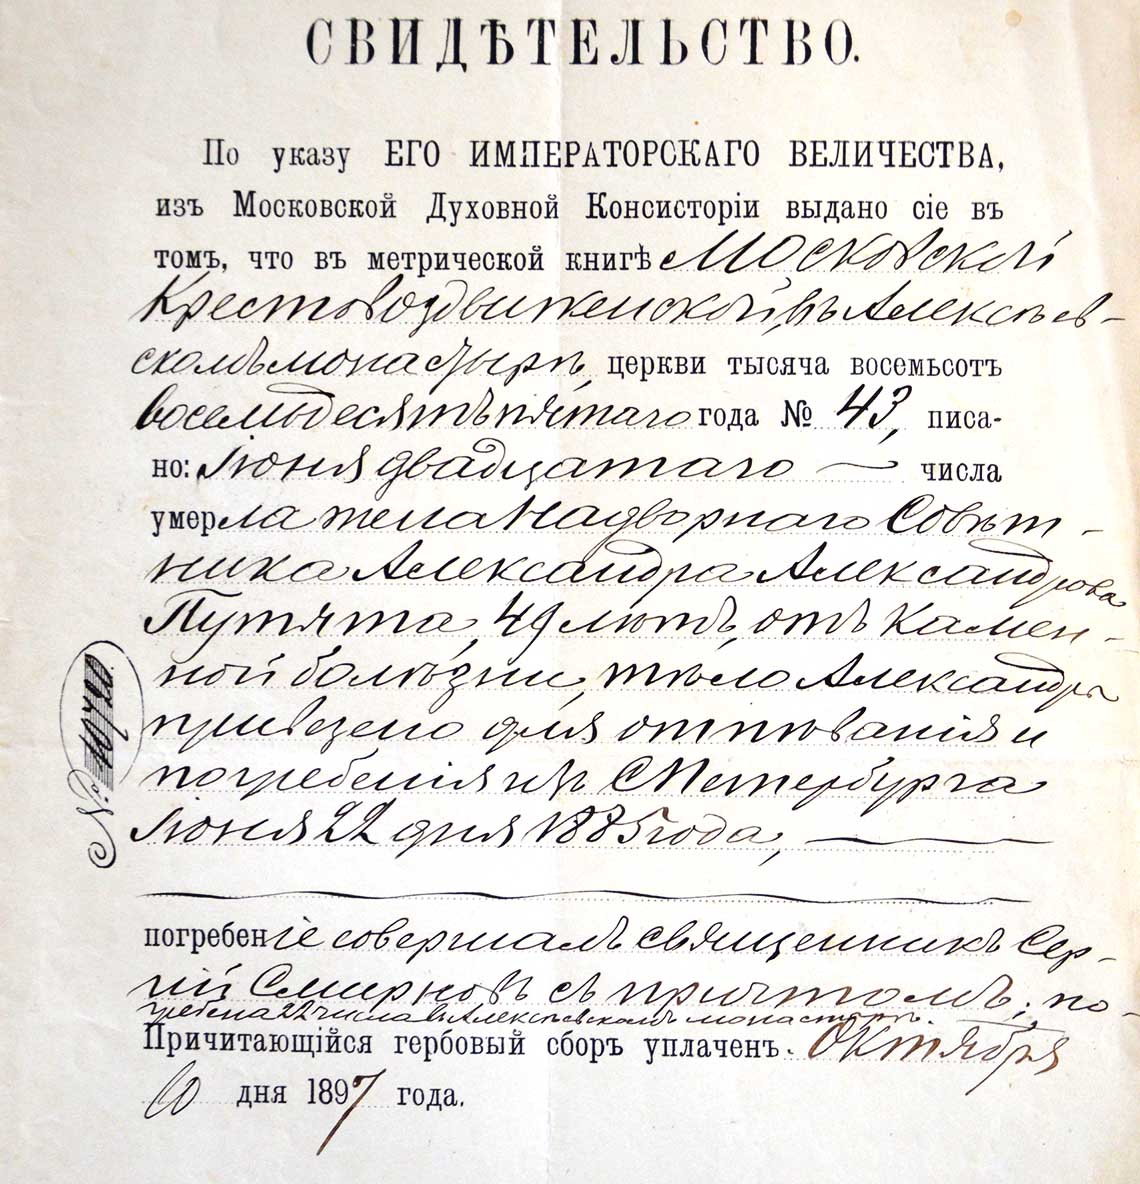 СВИДѢТЕЛЬСТВО.
По указу ЕГО ИМПЕРАТОРСКАГО ВЕЛИЧЕСТВА,
изъ Московской Духовной Консисторіи выдано сіе въ
томъ, что въ метрической книгѣ Московской
Крестовоздвиженской, въ Алексѣев-
скомъ монастырѣ, церкви тысяча восемьсотъ
восемьдесятъ пятаго года № 43, писа-
но: Іюня двадцатаго — числа
умерла жена Надворнаго Совѣт-
ника Александра Александрова
Путята, 49 лѣтъ, отъ камен-
ной болѣзни, тѣло Александры
привезено для отпѣванія и
погребенія изъ С Петербурга
Іюня 22 дня 1885 года,
погребеніе совершалъ священникъ Сер-
гій Смирновъ съ причтомъ; по-
гребена 22 числа въ Алексѣевскомъ монастырѣ.
Причитающійся гербовый сборъ уплаченъ. Октября
10 дня 1897 года.
№